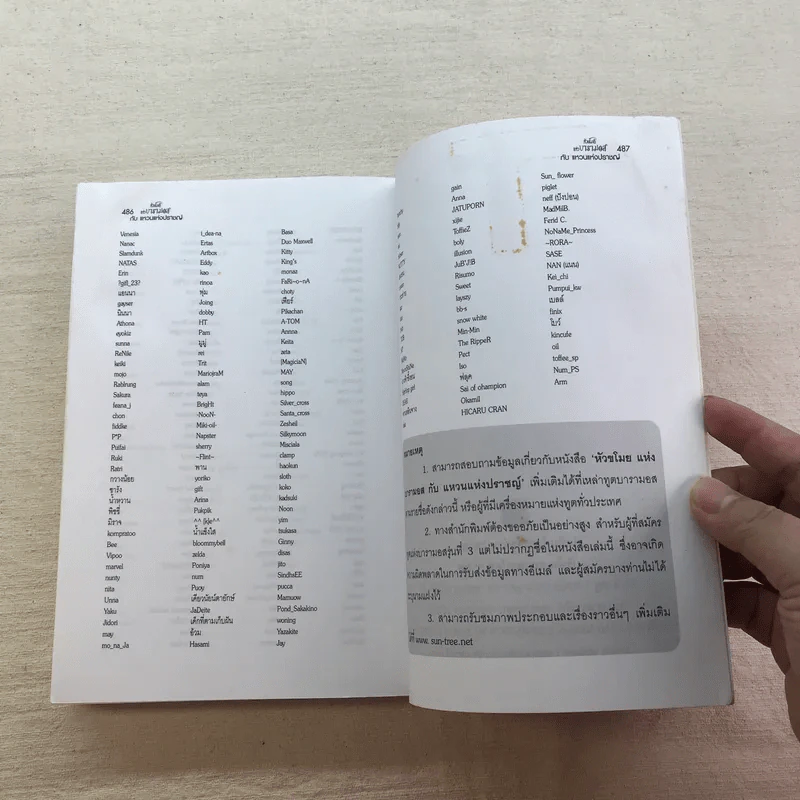 486
หัวขโมย
แห่งบารามอส
กับ แหวนแห่งปราชญ์
Venesia
Nanac
Slamdunk
NATAS
Erin
?gifl_23?
แอนนา
gayser
นินนา
Athona
eyokiz
sunna
ReNile
keiki
mojo
Rablrung
Sakura
feana_j
chon
fiddle
P*P
Putfai
Ruki
Ratri
กวางน้อย
ชูารัง
น้ำหวาน
พีชชี่
มิราจ
kompratoo
Bee
Vipoo
marvel
nunty
nita
Unria
Yaku
Jidori
may
mo_na_Ja
i_dea-na
Ertas
Artbox
Eddy
kao
rinoa
พุ่ม
Joing
dobby
HT
Pam
มูมู่
sei
Trit
MariojraM
alam
taya
BrigHt
-NooN-
Miki-oil-
Napster
sherry
~Flint~
พาน
yoriko
gift
Arina
Pukpik
^^ {k}e^^
น้ำแข็งใส
bloommybell
zelda
Poniya
num
Puoy
เดียวนัยน์ตายักษ์
JaDeite
เด็กที่ตามเก็บฝัน
อ้วม
Hasami
Bass
Duo Maxwell
Kitty
King's
monaz
FaRi~o~nA
choty
เฟียร์
Pikachan
A-TOM
Annna
Keita
aria
[MagiciaN]
MAY
song
hippo
Silver_cross
Santa_cross
Zesheil
Silkymoon
Maciala
clamp
haokun
sloth
koko
kadsuki
Noon
yim
tsukasa
Ginny
disas
jito
SindhsEE
pucca
Mamuow
Pond_Sakakino
woning
Yazakite
Jay
หัวขโมย
แห่งบารามอส
487
กับ แหวนแห่งปราชญ์
gain
Anna
JATUPORN
xijie
ToffieZ
boly
illusion
JuB'J!B
Risumo
Sweet
layszy
bb-s
snow white
Min-Min
The RippeR
Pect
Iso
ฟลุค
Sai of ohampion
Okamil
HICARU CRAN
Sun_ flower
piglet
neff (ปังปอน)
MadMilB.
Ferid C.
NoNaMe_Princess
~RORA~
SASE
NAN (แนน)
Kei_chi
Pumpui_kw
เบลล์
finix
โบว์
kincufe
oil
toffee_sp
Num_PS
Arm
มายเหตุ
1. สามารถสอบถามข้อมูลเกี่ยวกับหนังสือ 'หัวขโมย แห่ง
บารามอส กับ แหวนแห่งปราชญ์' เพิ่มเติมได้ที่เหล่าทูตบารามอส
ามรายชื่อดังกล่าวนี้ หรือผู้ที่มีเครื่องหมายแห่งทูตทั่วประเทศ
2. ทางสำนักพิมพ์ต้องขออภัยเป็นอย่างสูง สำหรับผู้ที่สมัคร
ูตแห่งบารามอสรุ่นที่ 3 แต่ไม่ปรากฏชื่อในหนังสือเล่มนี้ ซึ่งอาจเกิด
วามผิดพลาดในการรับส่งข้อมูลทางอีเมล์ และผู้สมัครบางท่านไม่ได้
ะบุนามแฝงไว้
3. สามารถรับชมภาพประกอบและเรื่องราวอื่นๆ เพิ่มเติม
ด้ที่ www. sun-tree.net